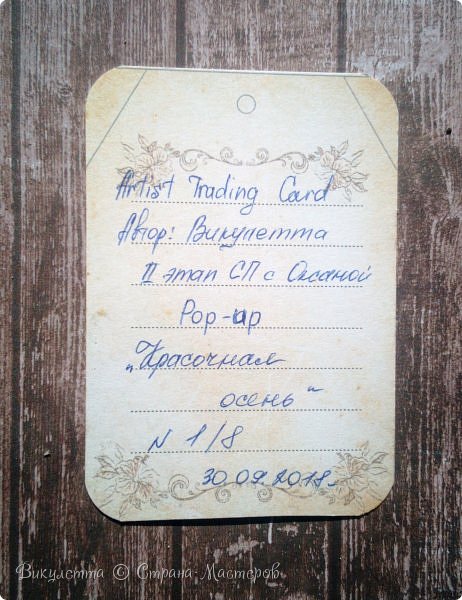 Artist Trading Card
Автор: Викулетта
II этап СП с Оксаной
Pop-up
„Красочная
осень"
N 1/8
30.09.2018г.
Викулетта © Страна Мастеров